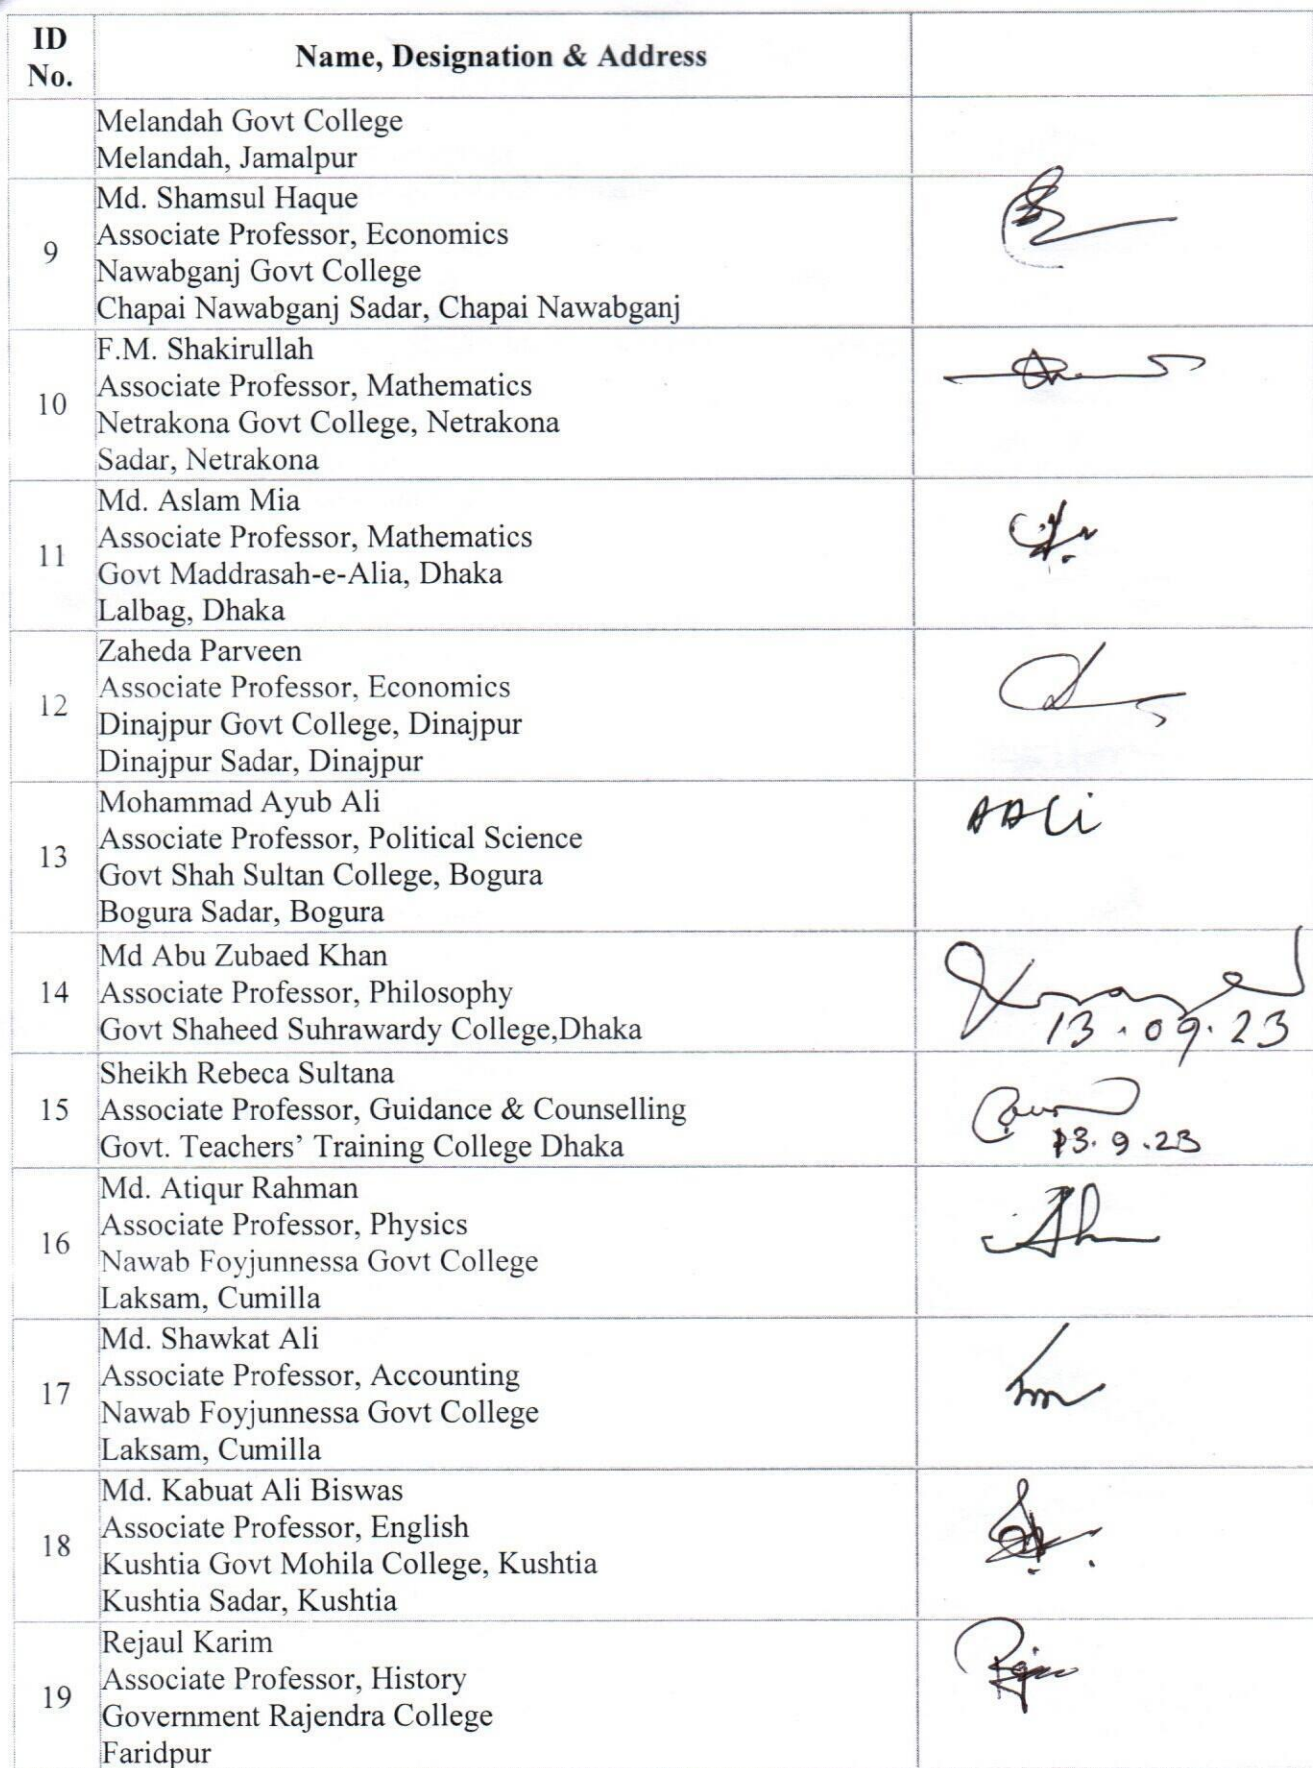 ID
No.
Name, Designation & Address
Melandah Govt College
Melandah, Jamalpur
9
Md. Shamsul Haque
Associate Professor, Economics
Nawabganj Govt College
Chapai Nawabganj Sadar, Chapai Nawabganj
10
F.M. Shakirullah
Associate Professor, Mathematics
Netrakona Govt College, Netrakona
Sadar, Netrakona
11
Md. Aslam Mia
Associate Professor, Mathematics
Govt Maddrasah-e-Alia, Dhaka
Lalbag, Dhaka
12
Zaheda Parveen
Associate Professor, Economics
Dinajpur Govt College, Dinajpur
Dinajpur Sadar, Dinajpur
13
Mohammad Ayub Ali
Associate Professor, Political Science
Govt Shah Sultan College, Bogura
Bogura Sadar, Bogura
AALi
14
Md Abu Zubaed Khan
Associate Professor, Philosophy
Govt Shaheed Suhrawardy College,Dhaka
13.09.23
15
Sheikh Rebeca Sultana
Associate Professor, Guidance & Counselling
Govt. Teachers’ Training College Dhaka
13.9.23
16
Md. Atiqur Rahman
Associate Professor, Physics
Nawab Foyjunnessa Govt College
Laksam, Cumilla
17
Md. Shawkat Ali
Associate Professor, Accounting
Nawab Foyjunnessa Govt College
Laksam, Cumilla
18
Md. Kabuat Ali Biswas
Associate Professor, English
Kushtia Govt Mohila College, Kushtia
Kushtia Sadar, Kushtia
19
Rejaul Karim
Associate Professor, History
Government Rajendra College
Faridpur